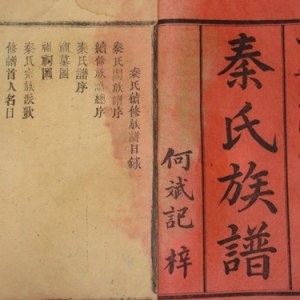 秦氏族譜
何斌記 梓
秦氏續修族譜目錄
秦氏族譜序
續修族譜序
秦氏譜序
祖墓圖
祖祠圖
秦氏宗族派
修譜首人名目